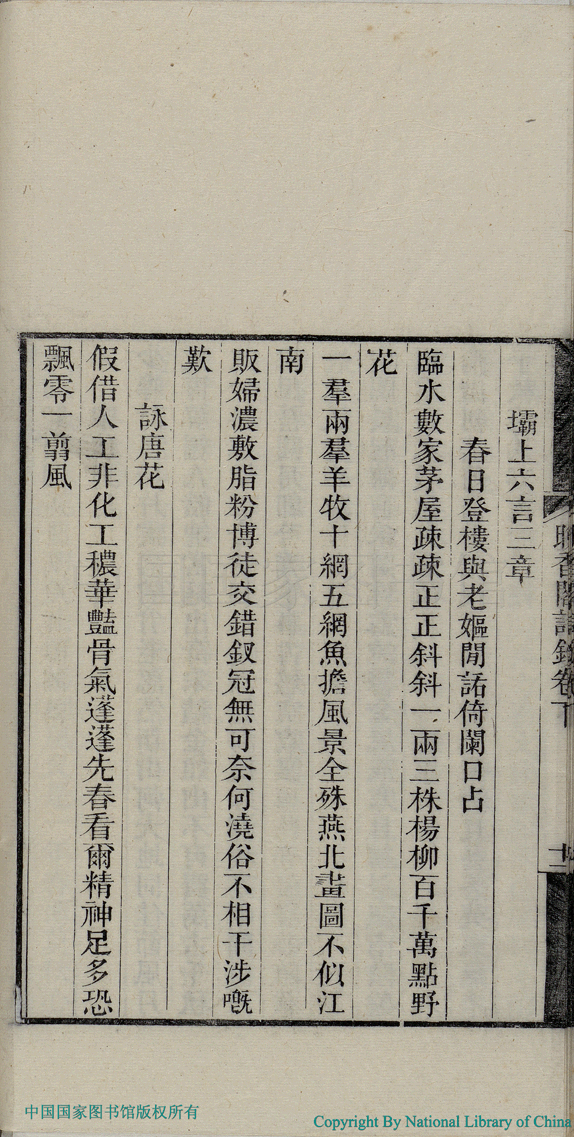 壩上六言三章
春日登樓與老嫗閒話倚闌口占
臨水數家茅屋疎疎正正斜斜一兩三株楊柳百千萬點野
花
一羣兩羣羊牧十網五網魚擔風景全殊燕北畫圖不似江
南
販婦濃敷脂粉博徒交錯釵冠無可奈何澆俗不相干涉嘅
歎
詠唐花
假借人工非化工穠華豔骨氣蓬蓬先春看爾精神足多恐
飄零一翦風
香閣詩鈔卷下
中国国家图书馆版权所有
Copyright By National Library of China